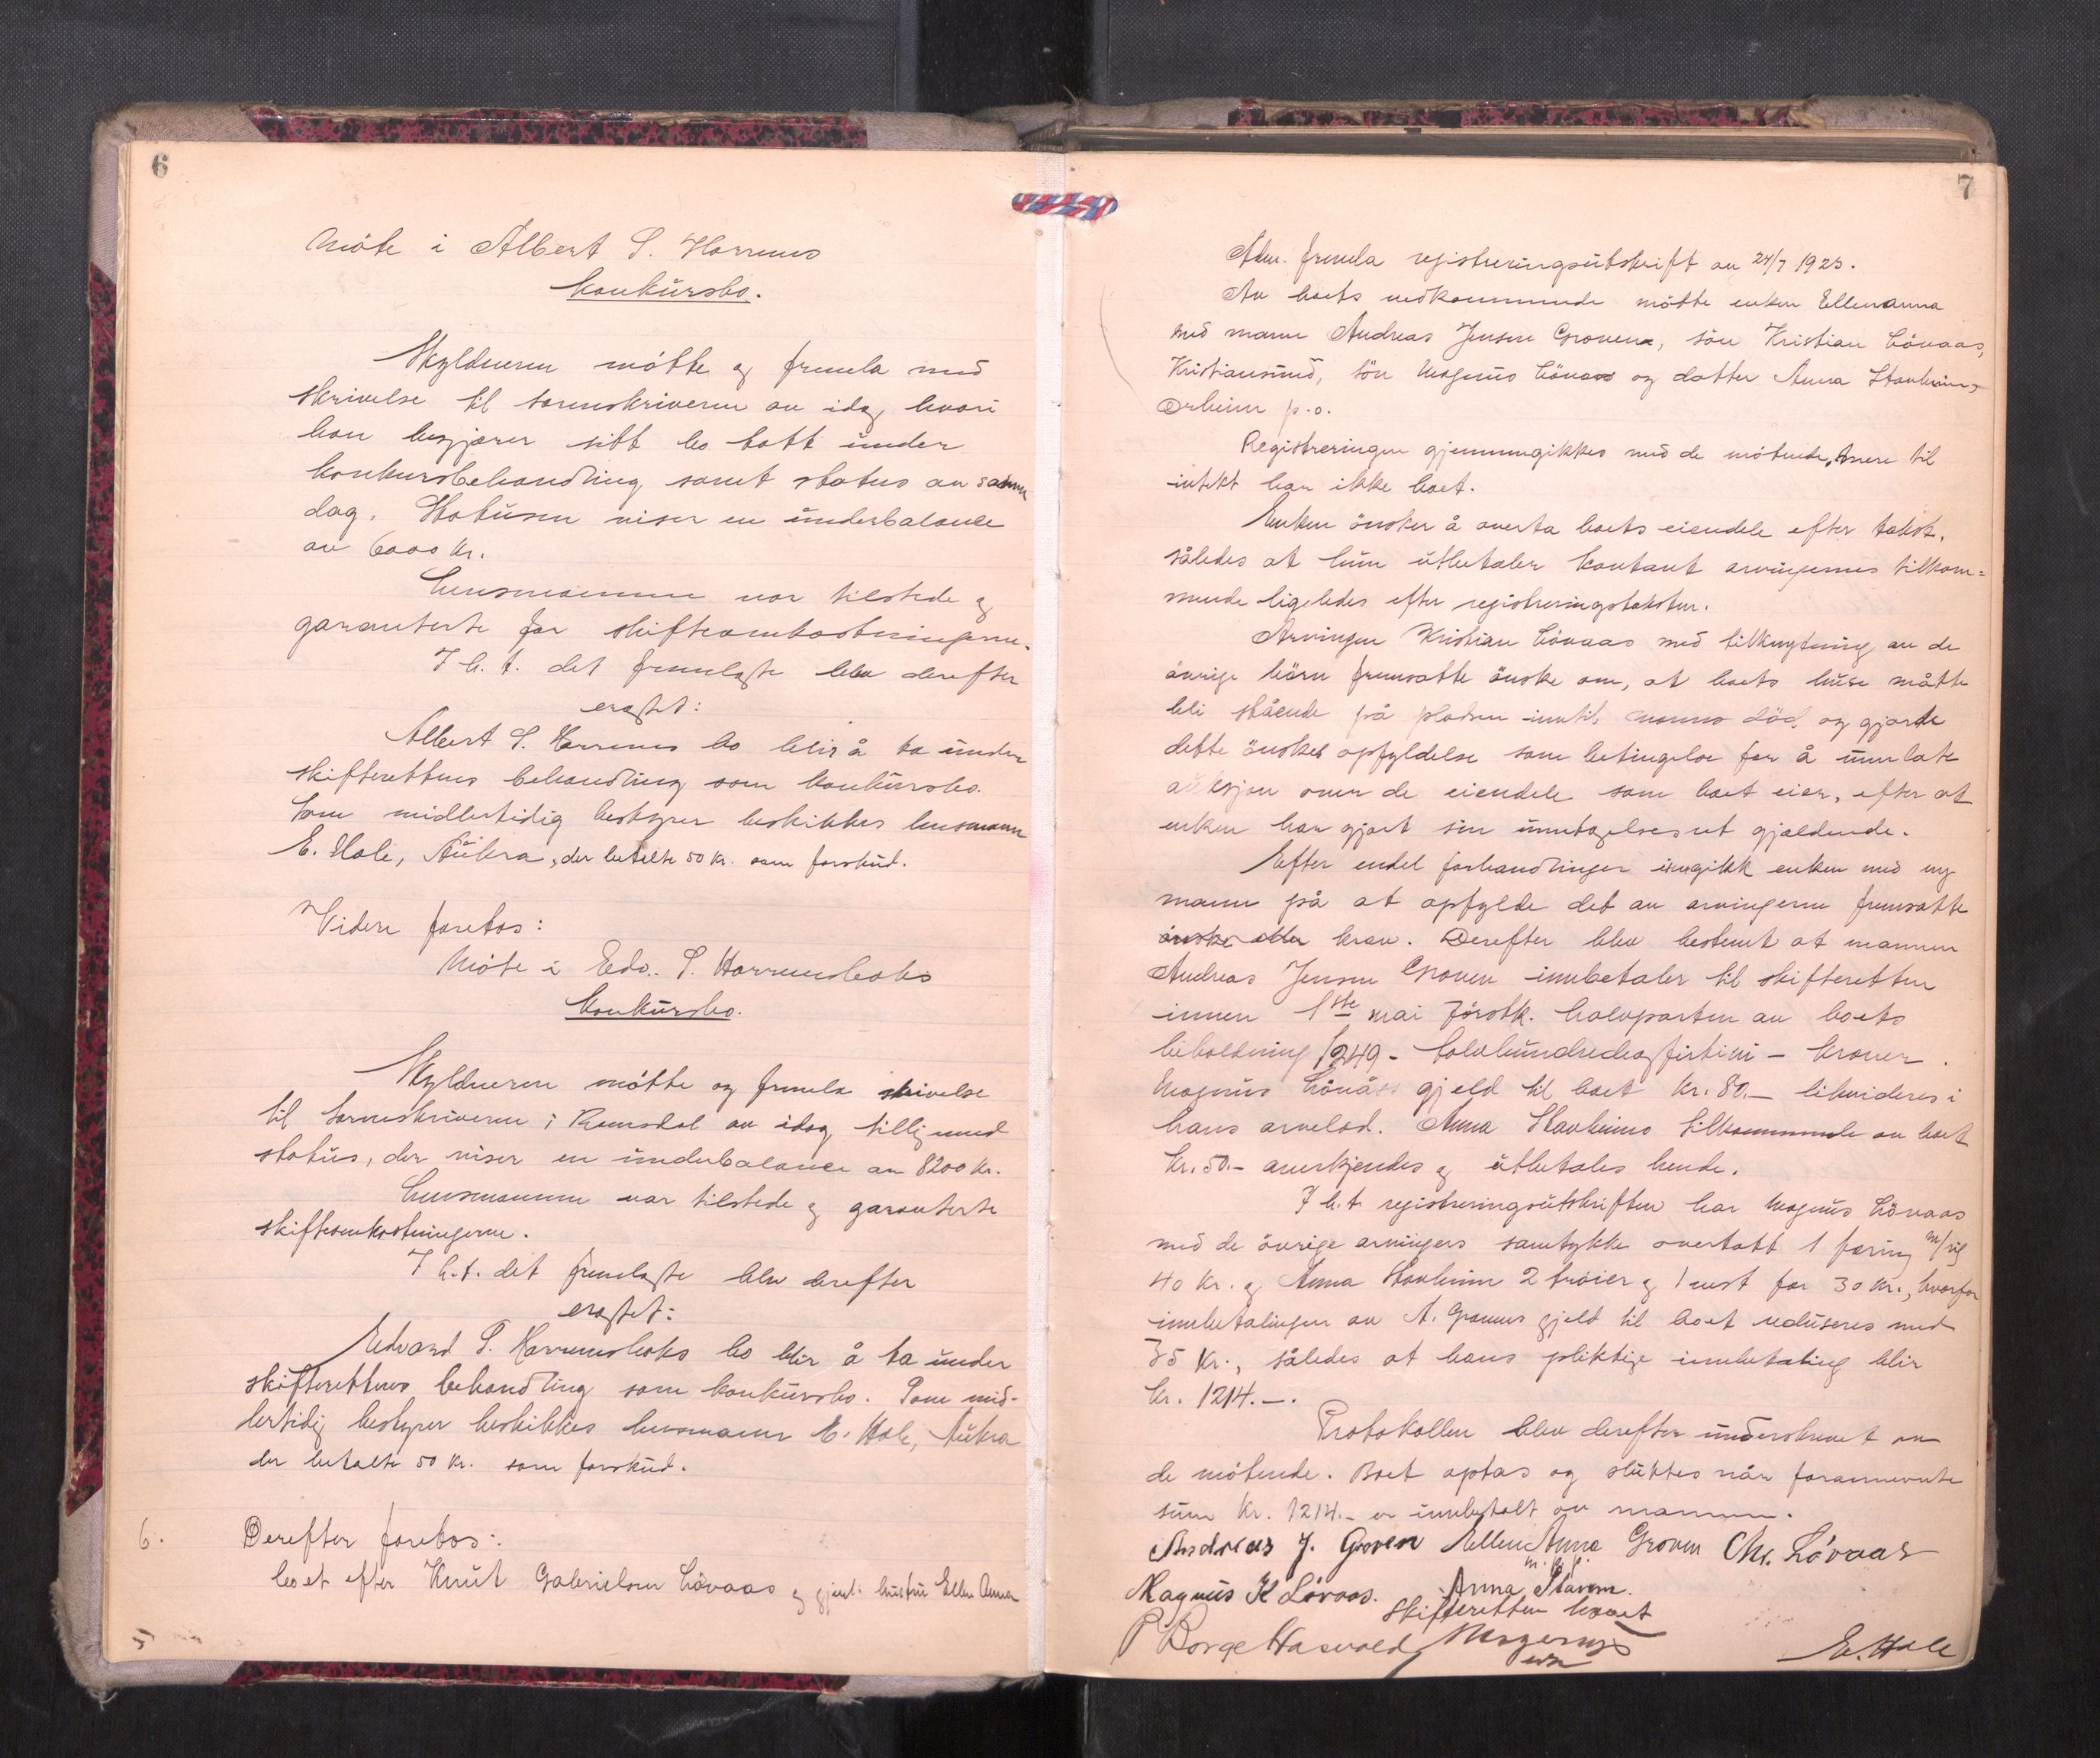 6
Möte i Albert P. Harrems
konkursbo.
Skyldneren mötte og fremla med
skrivelse til sorenskriveren av idag, hvori
han begjærer sitt bo tatt under
konkursbehandling samt status av samme
dag. Statusen viser en underbalance
av 6000 kr.
Lensmannen var tilstede og
garanterte for skifteomkostningerne.
I h. t. det fremlagte blev derefter
eragtet:
Albert P. Harrems bo blir å ta under
skifterettens behandling som konkursbo.
Som midlertidig bestyrer beskikkes lensmann
E. Hole, Aukra, der betalte 50 kr. som forskud.
Videre foretos:
Möte i Edv. P. Harremsbaks
konkursbo.
Skyldneren mötte og fremla skrivelse
til sorenskriveren i Romsdal av idag tillikemed
status, der viser en underbalance av 8200 kr.
Lensmannen var tilstede og garanterte
skifteomkostningerne.
I h. t. det fremlagte blev derefter
eragtet:
Edvard P. Harremsbaks bo blir å ta under
skifterettens behandling som konkursbo. Som mid-
lertidig bestyrer beskikkes lensmann E. Hole, Aukra
der betalte 50 kr. som forskud.
6. Derefter foretos:
boet efter Knut Gabrielsen Lövaas og gjenl. hustru Ellen Anna
7
Adm. fremla registreringsutskrift av 24/7 1923.
Av boets vedkommende mötte enken Ellenanna
med mann Andreas Jensen Groven, sön Kristian Lövaas,
Kristiansund, sön Magnus Lövaas og datter Anna Stavheim,
Orheim p.o.
Registreringen gjennemgikkes med de mötende. Mere til
intekt har ikke boet.
Enken önsker å overta boets eiendele efter takst,
således at hun utbetaler kontant arvingernes tilkom=
mende ligeledes efter registreringstaksten.
Arvingen Kristian Lövaas med tilknytning av de
övrige börn fremsatte önske om, at boets huse måtte
bli stående på pladsen inntil mannens död og gjorde
dette önskes opfyldelse som betingelse for å unnlate
auksjon over de eiendele som boet eier, efter at
enken har gjort sin unntagelsesret gjældende.
Efter endel forhandlinger inngikk enken med ny
mann på at opfylde det av arvingerne fremsatte
önske eller krav. Derefter blev bestemt at mannen
Andreas Jensen Groven innbetaler til skifteretten
innen 1ste mai förstk. halvparten av boets
beholdning 1249 - tolvhundredeogfirtini - kroner.
Magnus Lövaas gjeld til boet kr. 80.- likvideres i
hans arvelod. Anna Stavheims tilkommende av boet
kr. 50.- anerkjendes og utbetales hende.
I h. t. registreringsutskriften har Magnus Lövaas
med de övrige arvingers samtykke overtatt 1 færing m/sig
40 kr. og Anna Stavheim 2 tröier og 1 vest for 30 kr., hvorfor
innbetalingen av A. Grovens gjeld til boet reduseres med
35 kr., således at hans pliktige innbetaling blir
kr. 1214.-.
Protokollen blev derefter underskrevet av
de mötende. Boet optas og sluttes når forannevnte
sum kr. 1214.- er innbetalt av mannen.
Andreas J. Groven Ellen Anna Groven Chr. Lövaas
m. p. p.
Magnus K Lövaas. Anna Stavem.
Skifteretten hævet
P Borge Hasvold E. Hole